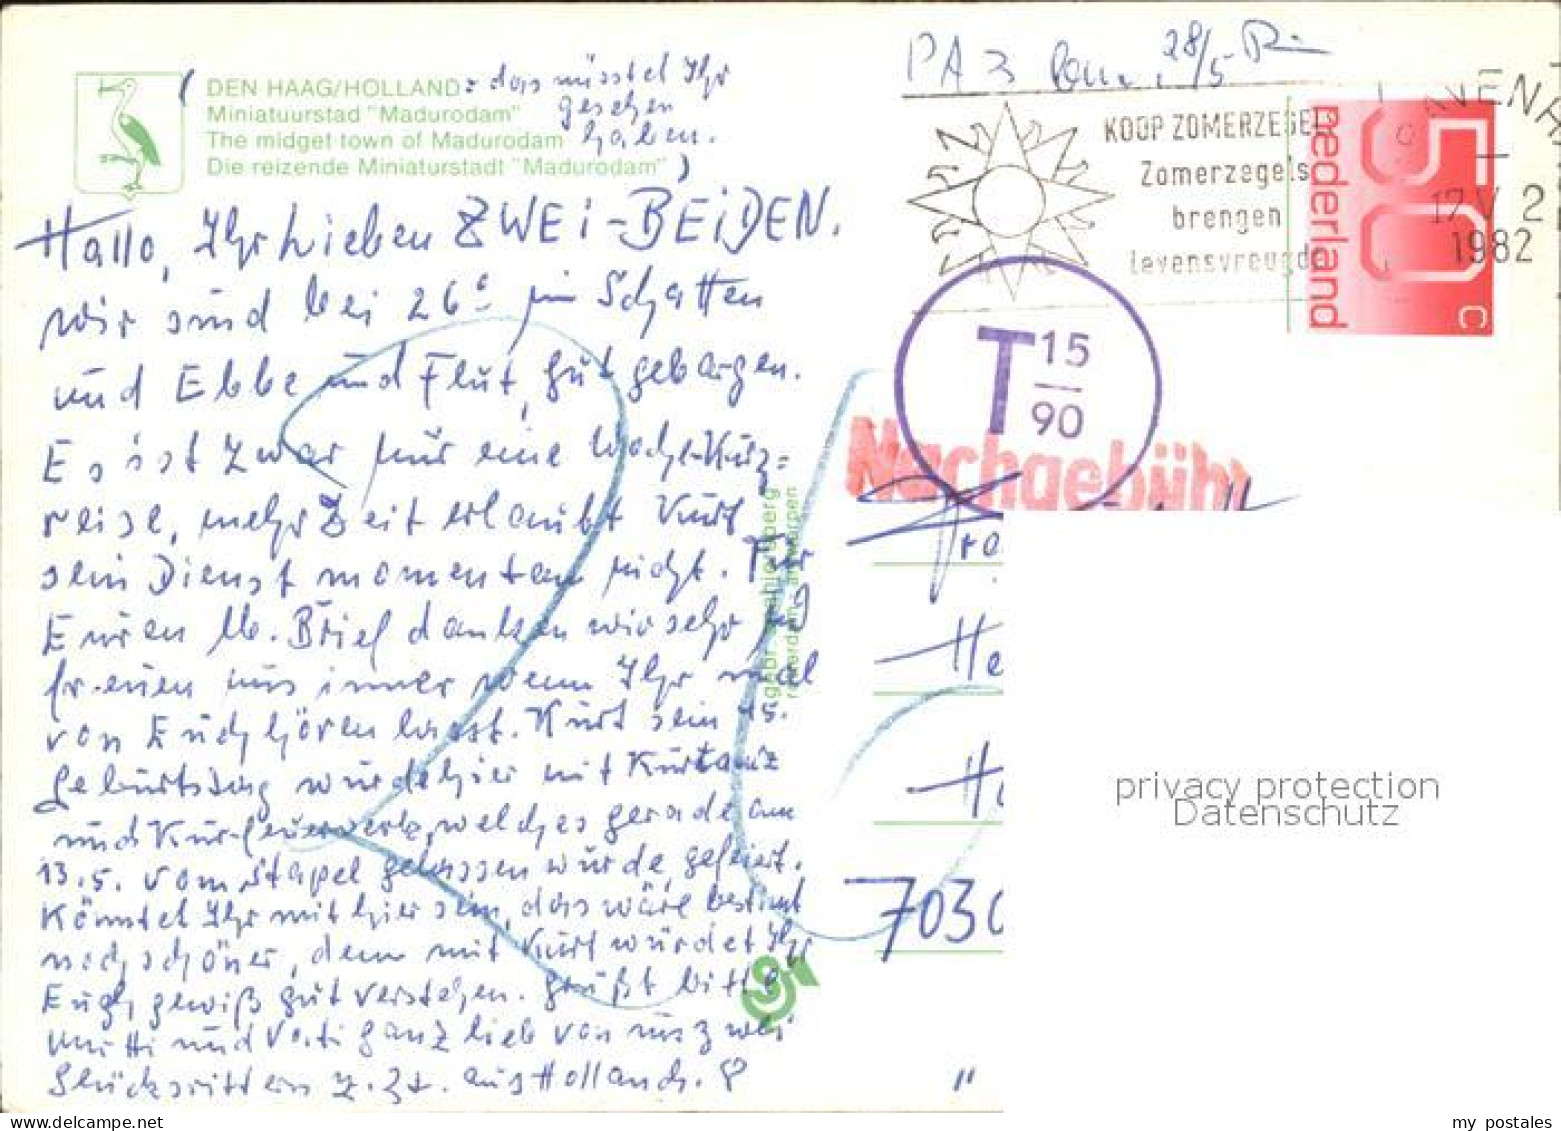 PA 3 28/5
DEN HAAG/HOLLAND = das müsstet Ihr
Miniatuurstad "Madurodam" gesehen
The midget town of Madurodam haben.
Die reizende Miniaturstadt "Madurodam" )
KOOP ZOMERZEGELS
Zomerzegels
brengen
levensvreugde
AVENHA
17.V 2
1982
nederland
50 c
T 15
90
Nachgebühr
Hallo, Ihr Lieben ZWEI-BEIDEN.
wir sind bei 26° im Schatten
und Ebbe und Flut, gut geborgen.
Es ist zwar nur eine Woche Kurz=
reise, mehr Zeit erlaubt Kurt
sein Dienst momentan nicht. Für
Euren lb. Brief danken wir sehr und
freuen uns immer wenn Ihr mal
von Euch hören lasst. Kurt sein 45.
Geburtstag wurde hier mit Kurtanz
und Kurfeuerwerk, welches gerade am
13.5. vom Stapel gelassen wurde, gefeiert.
Könntet Ihr mit hier sein, das wäre bestimmt
noch schöner, denn mit Kurt würdet Ihr
Euch gewiß gut verstehen. Grüßt bitte
Mutti und Vati ganz lieb von uns zwei
Glücksrittern z. Zt. aus Holland.
gebr. spanjersberg
rotterdam - antwerpen
Fra
He
H
7030
"
privacy protection
Datenschutz
my postales